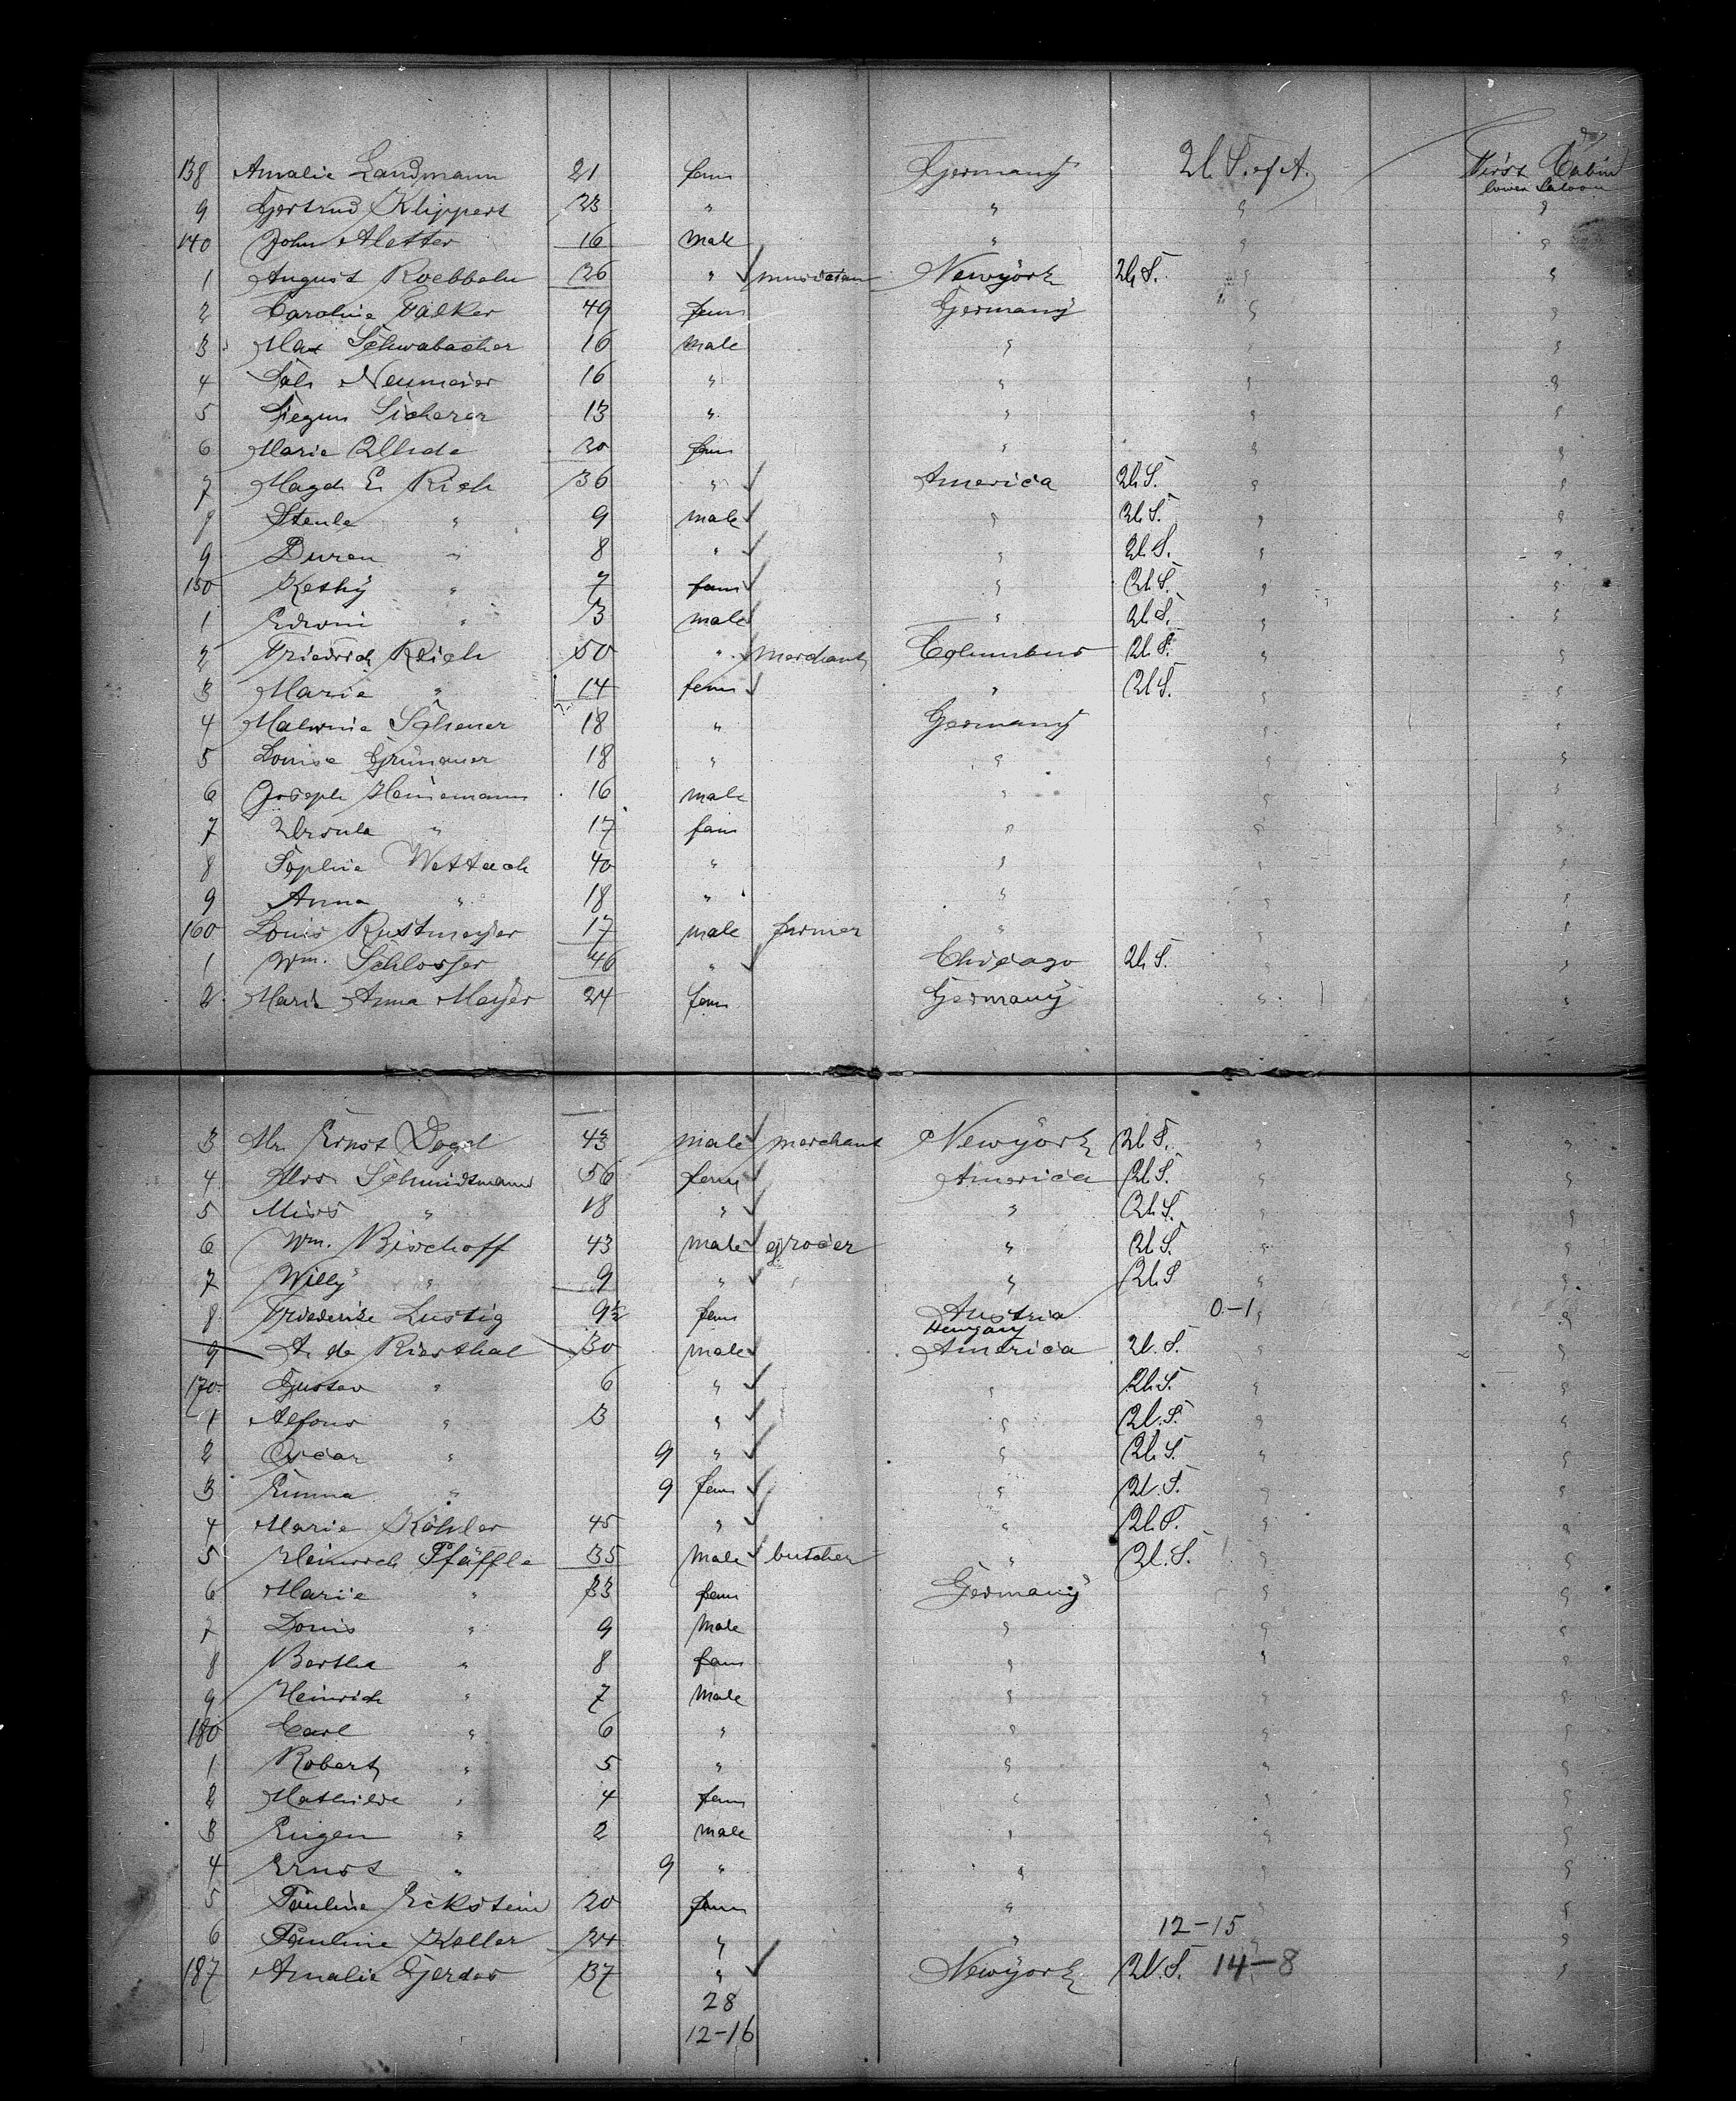 138 Amalie Landmann 21 fem Germany U.S. of A. First Cabin
lower Saloon
9 Gertrud Klippert 23 " " " "
140 John Aletter 16 male " " "
1 August Roebbeln 26 " musician Newyork U.S. " "
2 Caroline Falker 49 fem Germany " "
3 Max Schwabacher 16 male " " "
4 Sali Neumeier 16 " " " "
5 Siegm Sicherer 13 " " " "
6 Marie Uhde 30 fem " " "
7 Magd. E. Rich 36 " America U.S. " "
8 Steule " 9 male " U.S. " "
9 Duren " 8 " " U.S. " "
150 Kethy " 7 fem " U.S. " "
1 Edwin " 3 male " U.S. " "
2 Friedrich Reich 50 " merchant Columbus U.S. " "
3 Marie " 14 fem " U.S. " "
4 Malwine Scheuer 18 " Germany " "
5 Louise Grünauer 18 " " " "
6 Joseph Heinemann 16 male " " "
7 Ursula " 17 fem " " "
8 Sophie Wettach 40 " " " "
9 Anna " 18 " " " "
160 Louis Rustmeyer 17 male farmer " " "
1 Wm. Schlosser 46 " Chicago U.S. " "
2 Marie Anna Mayer 24 fem Germany " "
3 Mr. Ernst Dogel 43 male merchant Newyork U.S. " "
4 Mrs Schmidtmann 56 fem America U.S. " "
5 Miss " 18 " " U.S. " "
6 Wm. Bischoff 43 male grocer " U.S. " "
7 Willy " 9 " " U.S. " "
8 Friederike Lustig 9½ fem Austria 0-1 " "
Hungary
9 A. de Riesthal 30 male America U.S. " "
170 Gustav " 6 " " U.S. " "
1 Alfons " 3 " " U.S. " "
2 Oscar " 9 " " U.S. " "
3 Emma " 9 fem " U.S. " "
4 Marie Köhler 45 " " U.S. " "
5 Heinrich Pfäffle 35 male butcher " U.S. " "
6 Marie " 33 fem Germany " "
7 Louis " 9 male " " "
8 Bertha " 8 fem " " "
9 Heinrich " 7 male " " "
180 Carl " 6 " " " "
1 Robert " 5 " " " "
2 Mathilde " 4 fem " " "
3 Eugen " 2 male " " "
4 Ernst " 9 " " " "
5 Pauline Eckstein 20 fem " " "
6 Pauline Keller 24 " " 12-15 " "
187 Amalie Gerdes 37 " Newyork U.S. 14-8 "
28
12-16